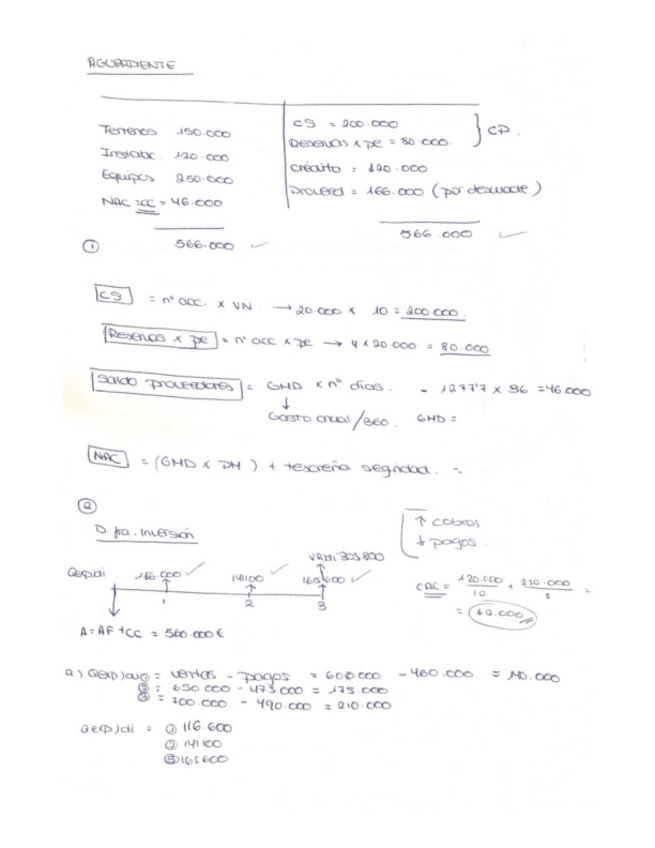 AGUARDIENTE
CS = 200.000
Terrenos 150.000
Reservas x pe = 80.000.
} CP.
Instalac. 120.000
crédito = 120.000
Equipos 250.000
Proveed = 166.000 (por descuadre)
NAC = CC = 46.000
566.000
566.000
①
CS = nº acc. x VN. → 20.000 x 10 = 200.000.
Reservas x pe = nº acc x pe → 4 x 20.000 = 80.000
Saldo proveedores = GMD x nº días. = 1277'7 x 36 = 46.000
↓
Gasto anual/360. GMD =
NAC = (GMD x PM) + tesorería seguridad. =
②
D. fra. Inversión
↑ cobros
↓ pagos.
VRdi 305.800
Qexp)di 116.000 141100 165600
CAC = 120.000/10 + 250.000/5 =
1 2 3
= 62.000
A = AF + CC = 560.000 €
a) Qexp)ai ① = ventas - pagos = 600.000 - 460.000 = 140.000
② = 650.000 - 475.000 = 175.000
③ = 700.000 - 490.000 = 210.000
Qexp)di = ① 116.600
② 141100
③ 165600